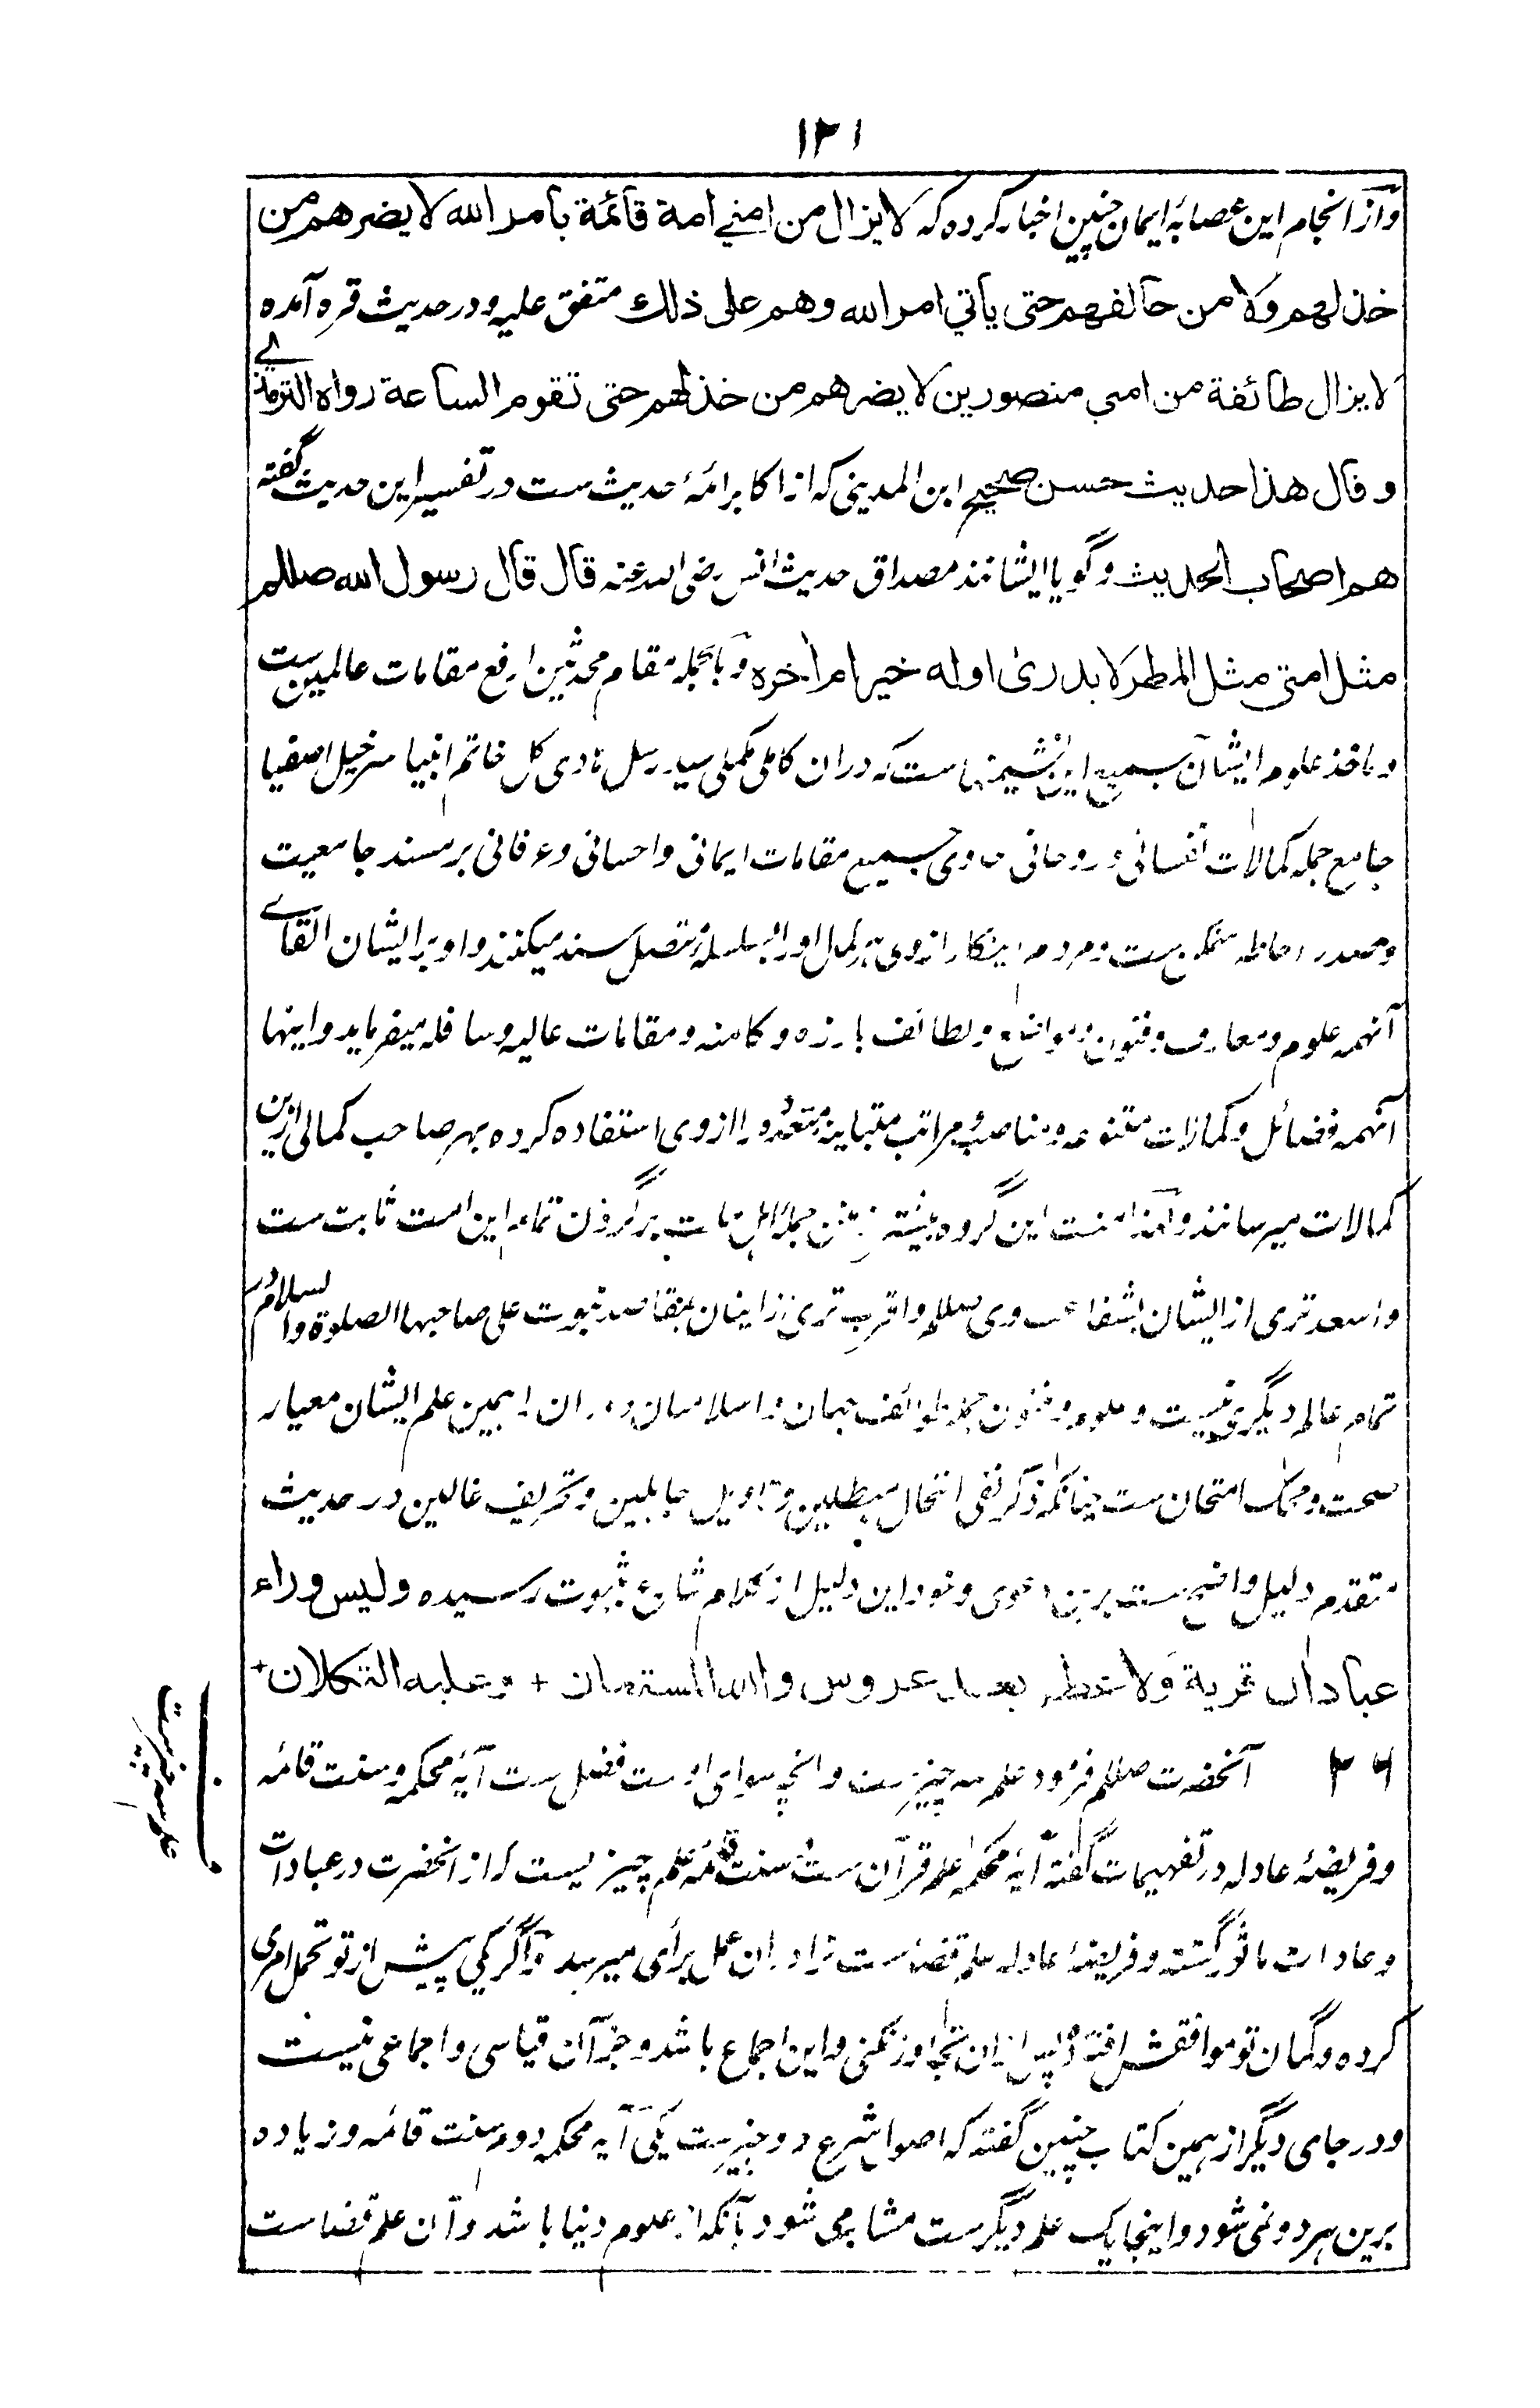 ۱۲۱
و از انجام این عصابۀ ایمان چنین اخبار کرده که لا یزال من امتی امة قائمة بامر الله لا یضرهم من
خذلهم ولا من خالفهم حتی یأتی امر الله وهم علی ذلك متفق علیه و در حدیث قره آمده
لا یزال طائفة من امتی منصورین لا یضرهم من خذلهم حتی تقوم الساعة رواه الترمذی
وقال هذا حدیث حسن صحیح ابن المدینی که از اکابر ائمۀ حدیث ست در تفسیر این حدیث گفته
هم اصحاب الحدیث و گویا ایشانند مصداق حدیث انس رضی الله عنه قال قال رسول الله صللم
مثل امتی مثل المطر لا یدری اوله خیر ام آخره و بالجمله مقام محدثین ارفع مقامات عالمین ست
و ماخذ علوم ایشان ست که در ان کامل مکملی سید رسل هادی کل خاتم انبیا سرخیل اصفیا
جامع جمله کمالات نفسانی و روحانی حاوی جمیع مقامات ایمانی و احسانی و عرفانی بر مسند جامعیت
و مردم متصل سند میکنند و او بر ایشان القای
آنهمه علوم و معارف و فنون و لطائف بارزه و کامنه و مقامات عالیه و سافله میفرماید و اینها
آنهمه فضائل و کمالات متنوعه و مناصب و مراتب متباینه متعدده را از وی استفاده کرده بهر صاحب کمالی ازین
کمالات میرسانند و لهذا منت این گروه بر گردن تمام این امت ثابت ست
و اسعد تری از ایشان بشفاعت وی صللم و اقرب تری از اینان بمقاصد نبوت علی صاحبها الصلوة والسلام در
تمام عالم دیگری نیست و علوم و فنون جمله طوائف جهان و اسلامیان دوران را همین علم ایشان معیار
صحت و محک امتحان ست چنانکه ذکر نفی انتحال مبطلین و تاویل جاهلین و تحریف غالین در حدیث
متقدم دلیل واضح ست برین دعوی و خود این دلیل از کلام شارع بثبوت رسیده ولیس وراء
عبادان قریة ولا عطر بعد عروس والله المستعان + وعلیه التکلان +
۳۶ آنحضرت صللم فرمود علم سه چیزست و انچه سوای اوست فضل ست آیۀ محکمه و سنت قائمه
و فریضۀ عادله در تفهیمات گفته آیۀ محکمه علم قرآن ست و سنت قائمه علم چیزیست که از انحضرت در عبادات
و عادات ماثور گشته و فریضۀ عادله علم قضاست زیرا در ان عمل برأی میرسد و اگر یکی پیش از تو تحمل امری
کرده و گمان تو موافقش افتد پس از ان تجاوز نکنی و این اجماع باشد و جز آن قیاسی و اجماعی نیست
و در جای دیگر از همین کتاب چنین گفته که اصول شرع دو چیزست یکی آیه محکمه دوم سنت قائمه و زیاده
برین هردو نمی شود و اینجا یک علم دیگرست مشابه می شود بآنکه از علوم دنیا باشد و آن علم قضاست
علم سه چیزست